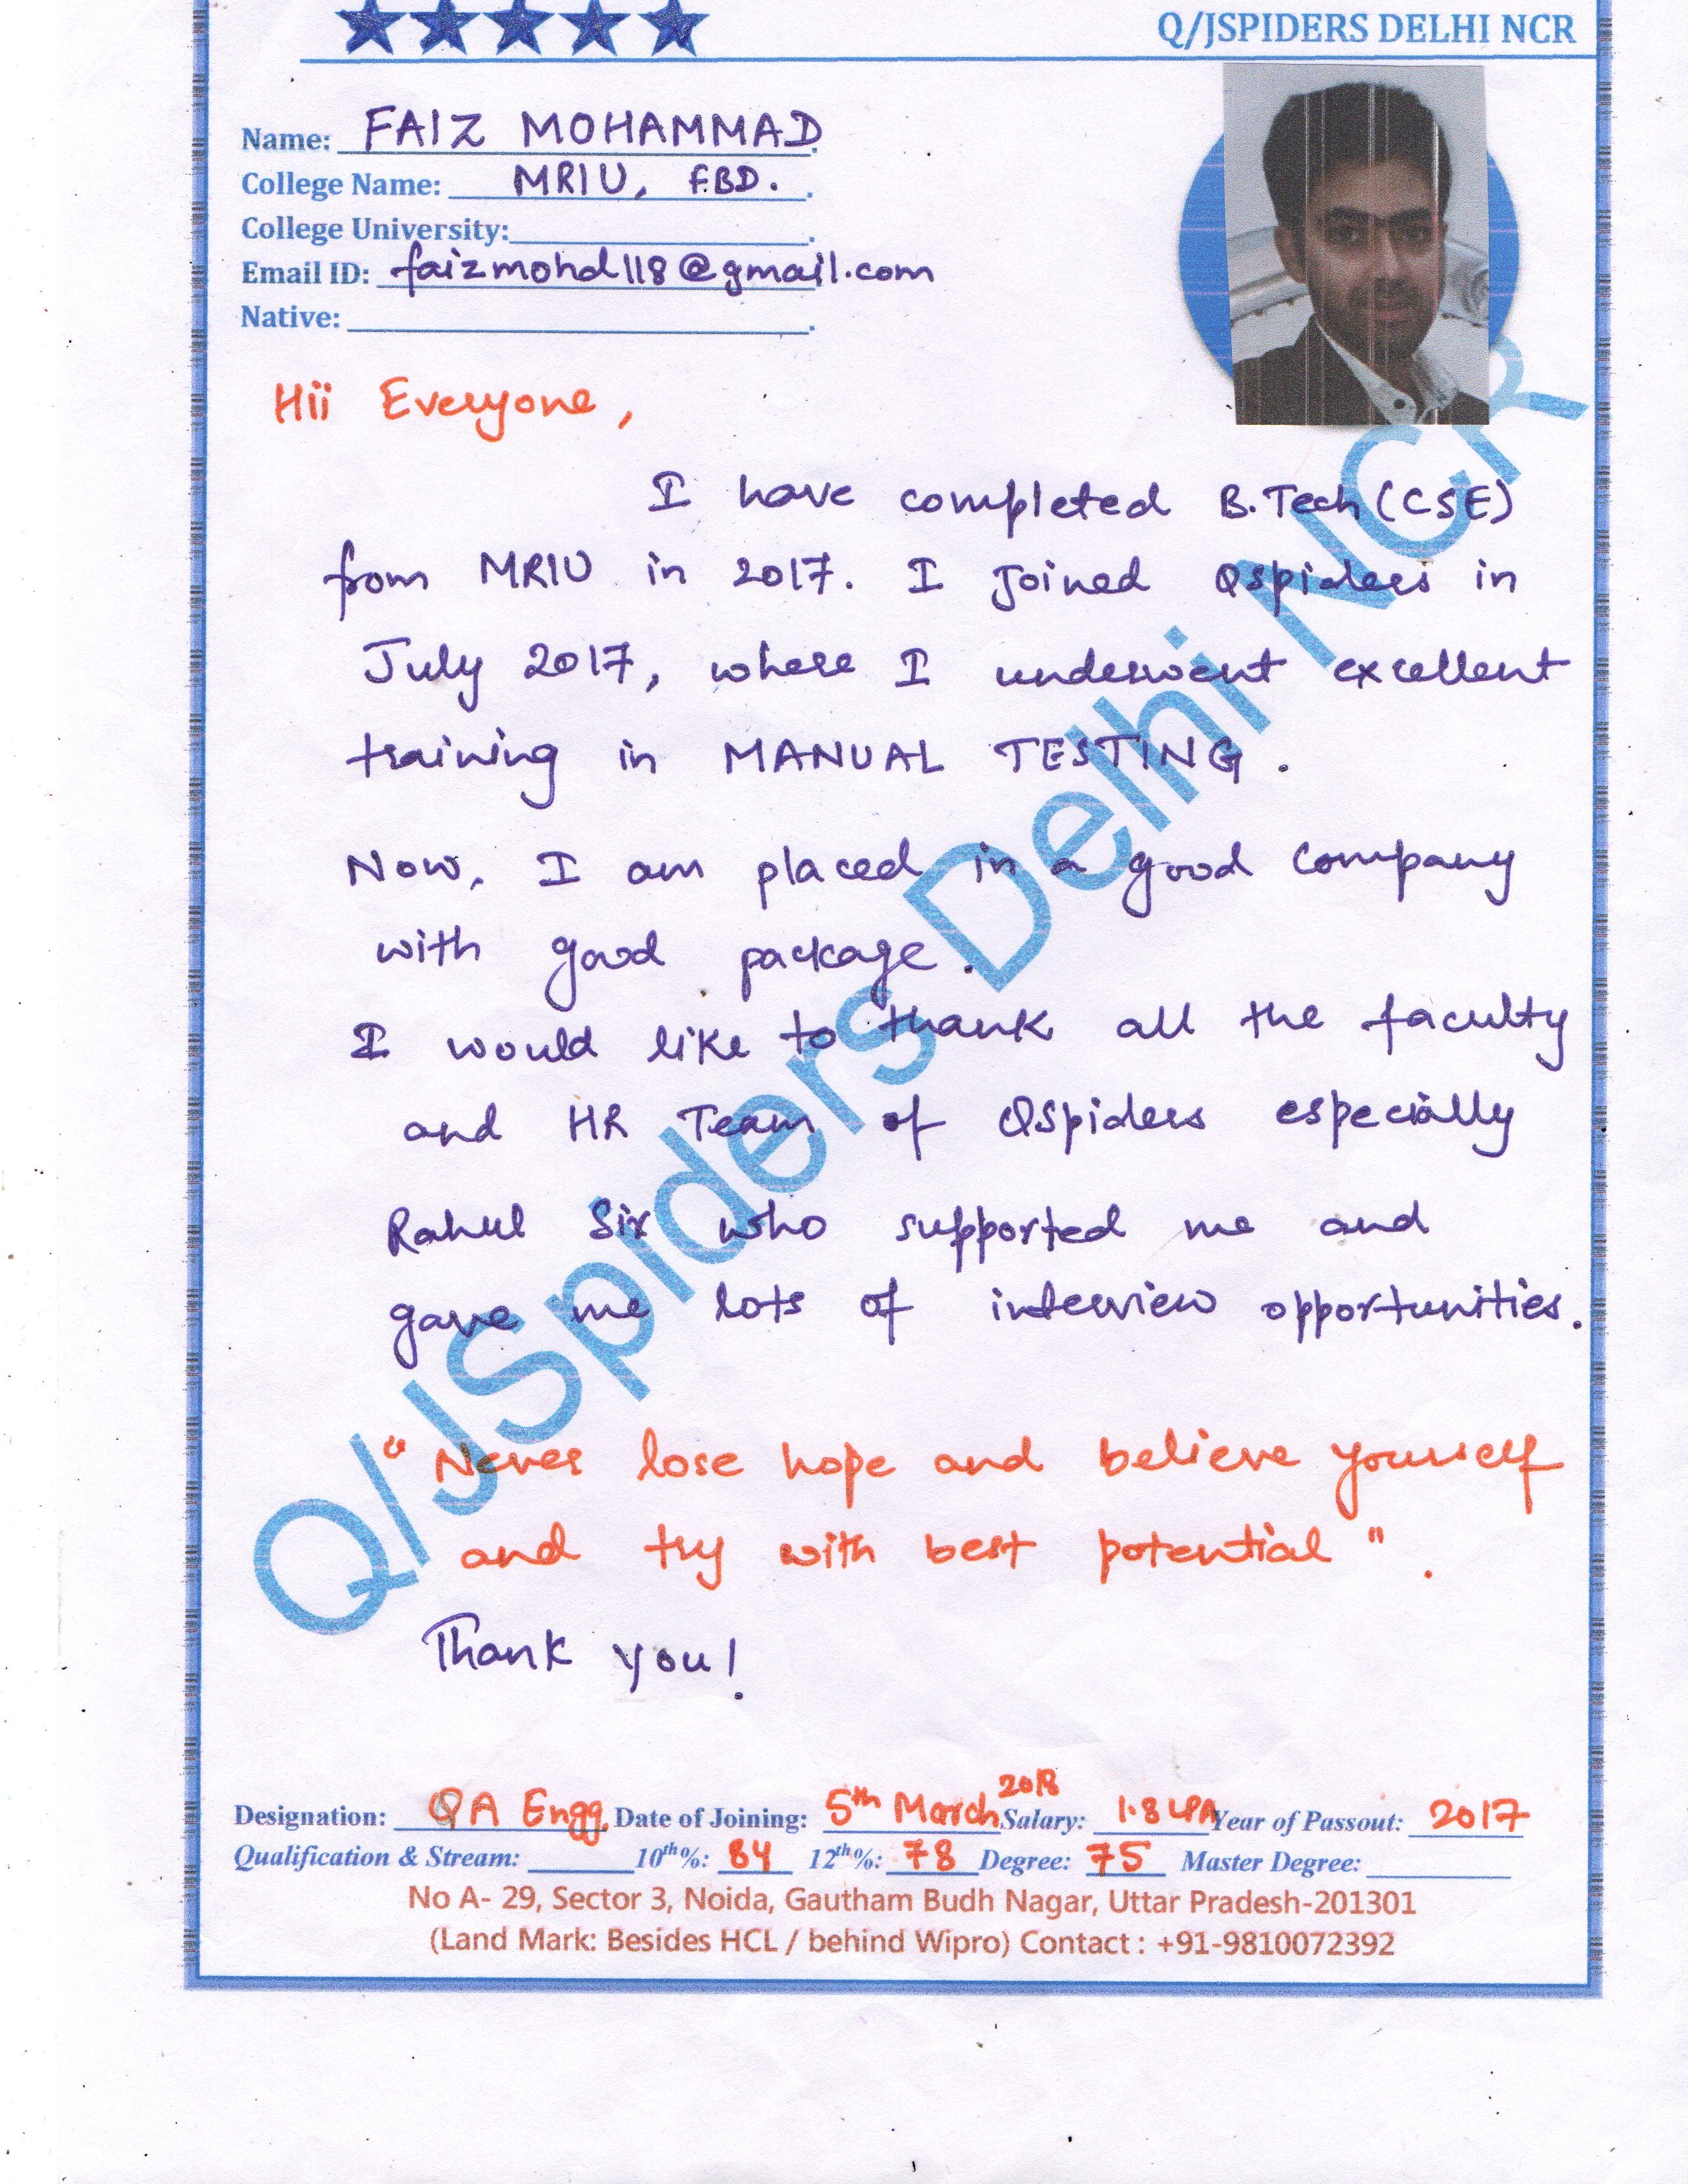 Q/JSPIDERS DELHI NCR
Name: FAIZ MOHAMMAD
College Name: MRIU, FBD.
College University:
Email ID: faizmohd118@gmail.com
Native:
Hii Everyone,
I have completed B.Tech(CSE)
from MRIU in 2017. I joined Qspiders in
July 2017, where I underwent excellent
training in MANUAL TESTING.
Now, I am placed in a good company
with good package.
I would like to thank all the faculty
and HR Team of QSpiders especially
Rahul Sir who supported me and
gave me lots of interview opportunities.
"Never lose hope and believe yourself
and try with best potential".
Thank you!
Q/JSpiders Delhi NCR
Designation: QA Engg. Date of Joining: 5th March 2018 Salary: 1.8 LPA Year of Passout: 2017
Qualification & Stream: 10th%: 84 12th%: 78 Degree: 75 Master Degree:
No A- 29, Sector 3, Noida, Gautham Budh Nagar, Uttar Pradesh-201301
(Land Mark: Besides HCL / behind Wipro) Contact : +91-9810072392